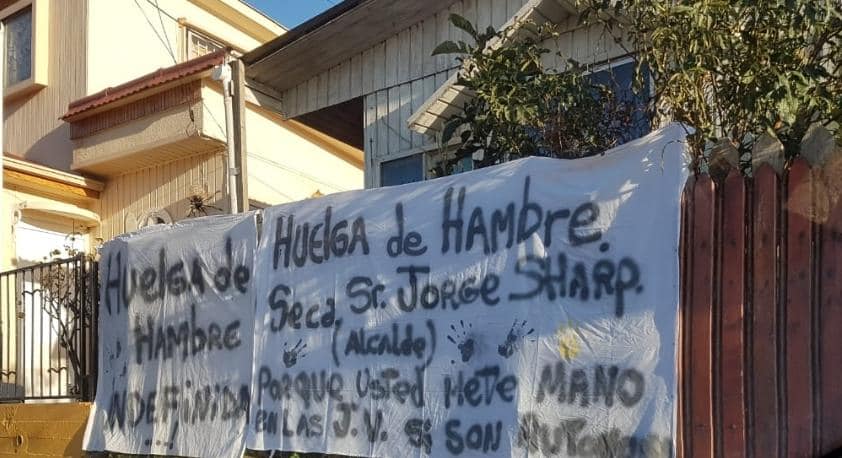 HUElGA de
HAMBRE
INDEFINIDA
...!
HUElGA de HAMbRE.
Seca Sr. JORGE SHARP.
(Alcalde)
PORQUE Usted METE MANO
EN LAS J.V. Si SON